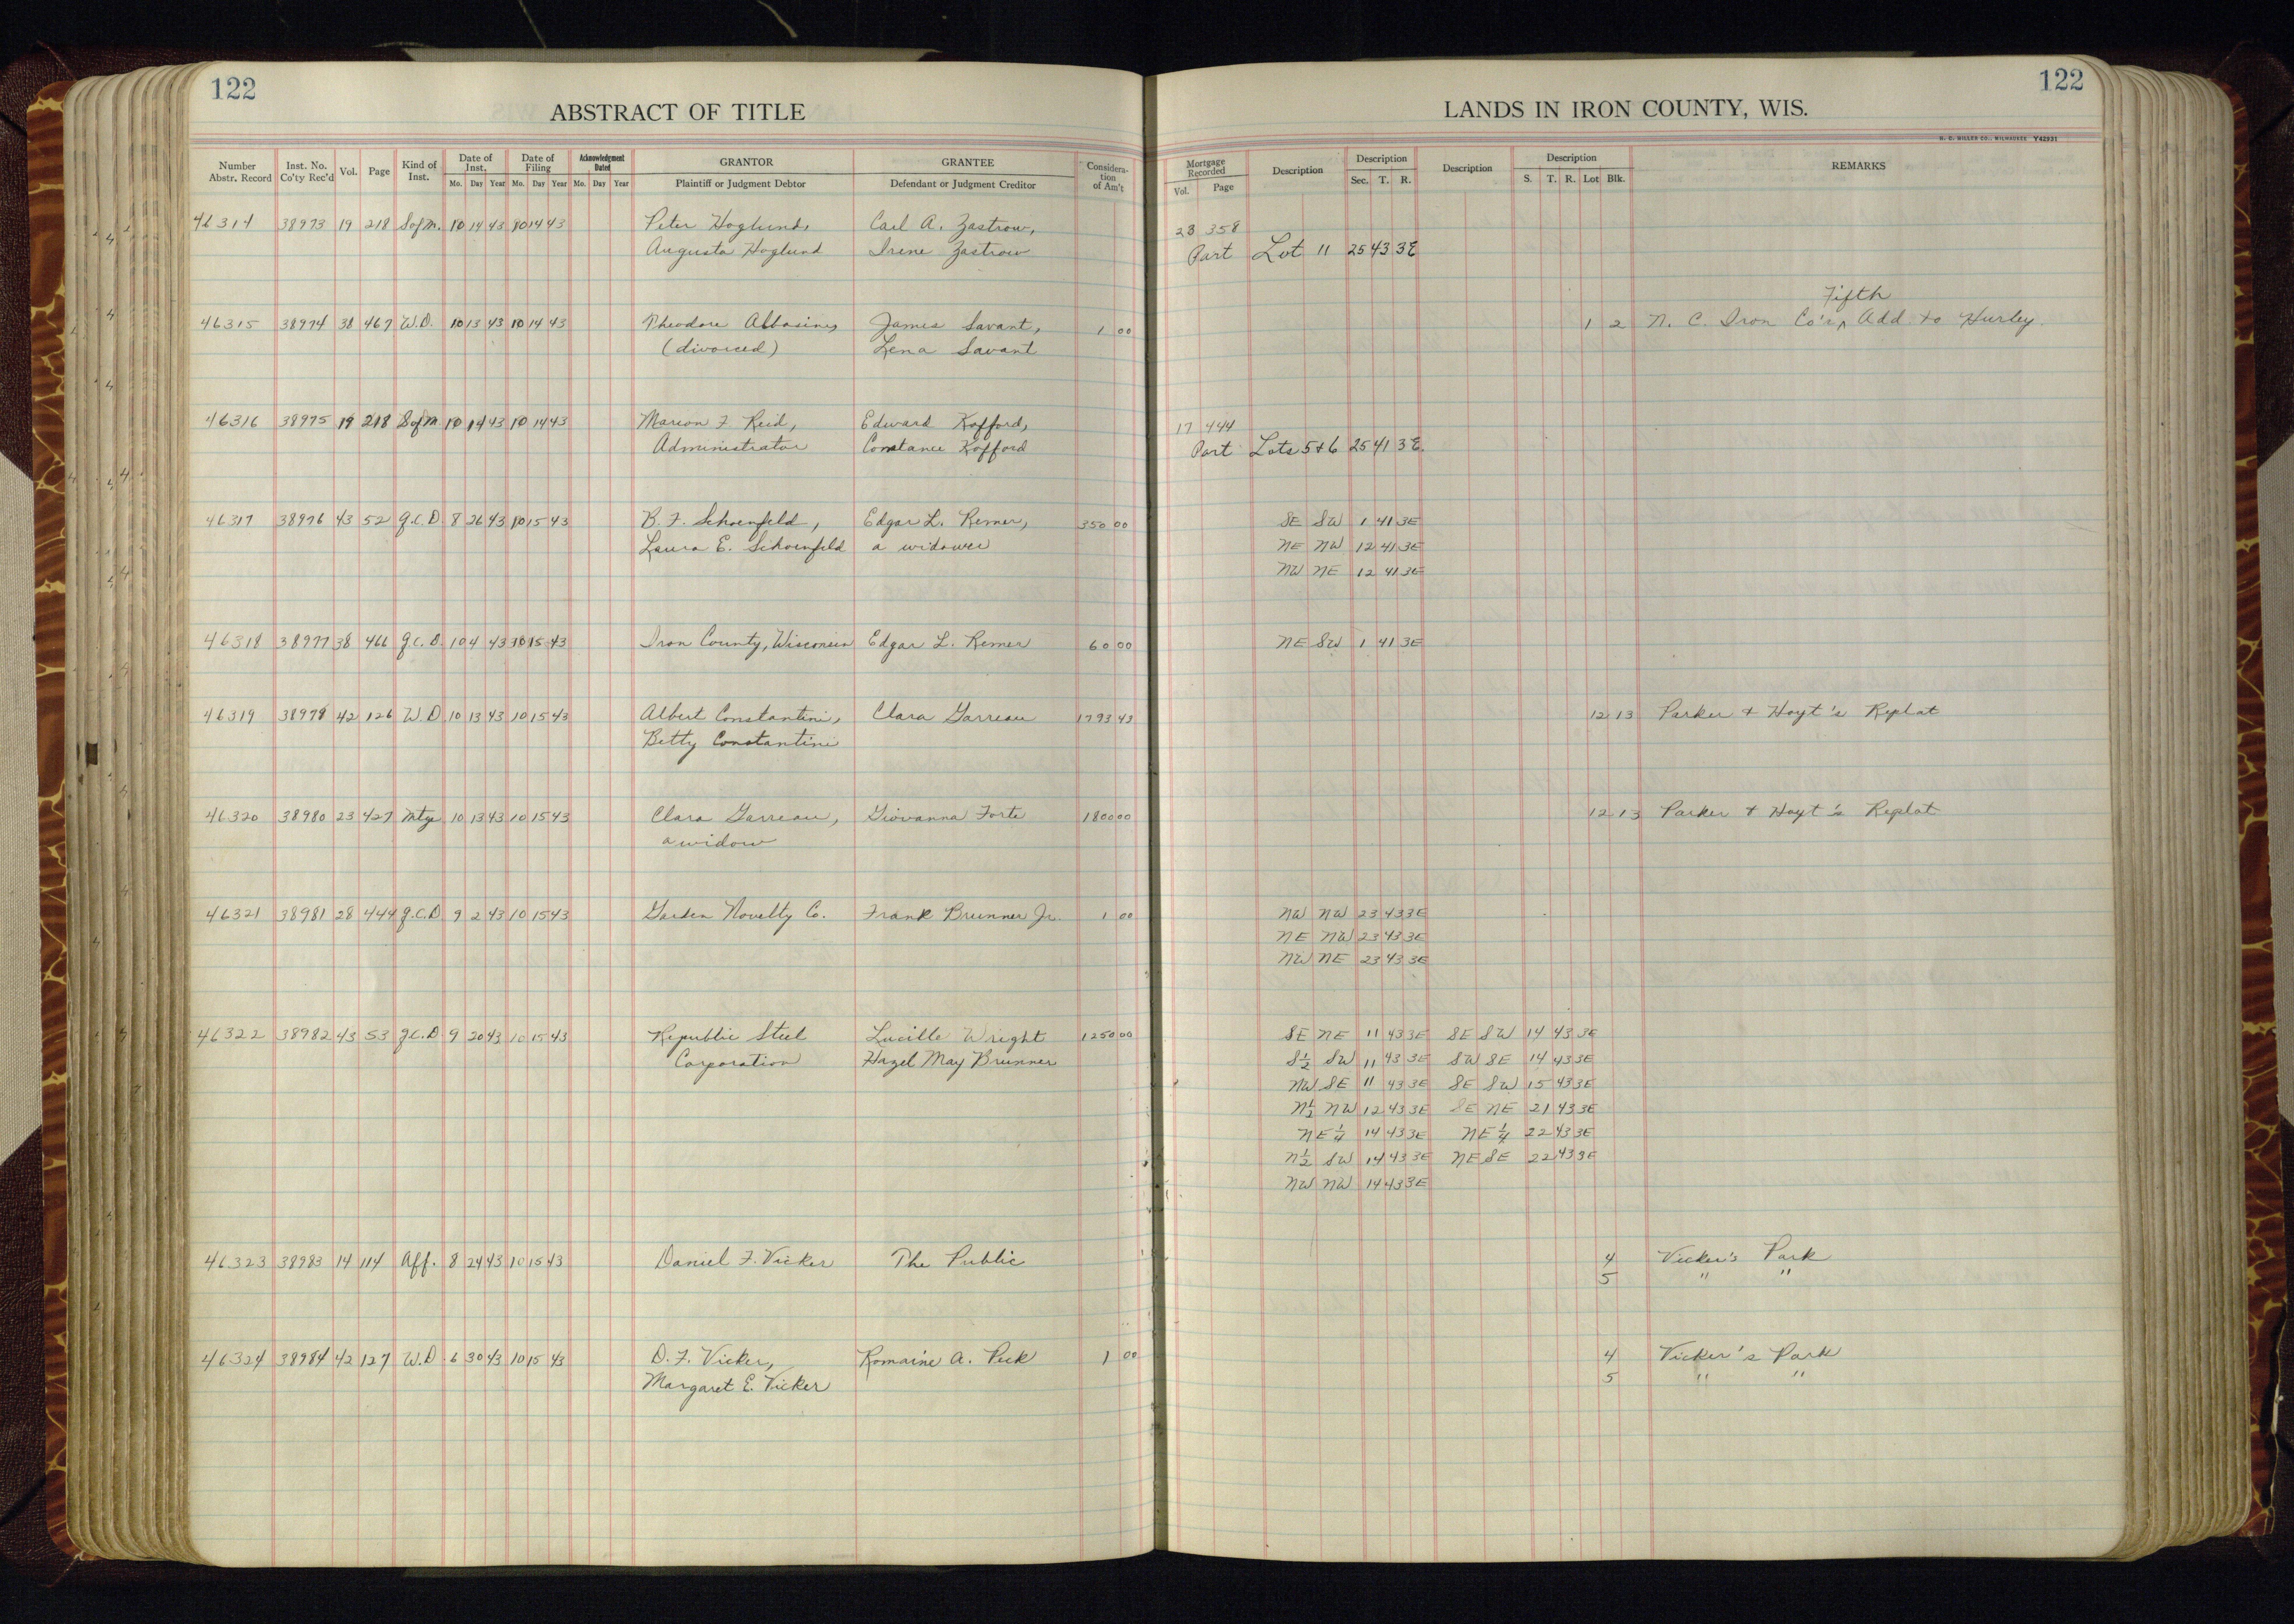 122
122
ABSTRACT OF TITLE
LANDS IN IRON COUNTY, WIS.
H. C. MILLER CO., MILWAUKEE Y42931
Number Abstr. Record Inst. No. Co'ty Rec'd Vol. Page Kind of Inst. Date of Inst. Mo. Day Year Date of Filing Mo. Day Year Acknowledgment Dated Mo. Day Year GRANTOR Plaintiff or Judgment Debtor GRANTEE Defendant or Judgment Creditor Consideration of Am't Mortgage Recorded Vol. Page Description Description Sec. T. R. Description Description S. T. R. Lot Blk. REMARKS
46314 38973 19 218 S of M. 10 14 43 10 14 43 Peter Hoglund, Carl A. Zastrow, 23 358
Augusta Hoglund Irene Zastrow Part Lot 11 25 43 3E
Fifth
46315 38974 38 467 W.D. 10 13 43 10 14 43 Theodore Albasiny James Savant, 1 00 1 2 N. C. Iron Co's ^ Add. to Hurley.
(divorced) Lena Savant
46316 38975 19 218 S of M 10 14 43 10 14 43 Marion F. Reid, Edward Kofford, 17 444
Administrator Constance Kofford Part Lots 5+6 25 41 3E.
46317 38976 43 52 Q.C.D 8 26 43 10 15 43 B. F. Schoenfeld, Edgar L. Remer, 350 00 SE SW 1 41 3E
Laura E. Schoenfeld a widower NE NW 12 41 3E
NW NE 12 41 3E
46318 38977 38 466 Q.C.D. 10 4 43 10 15 43 Iron County, Wisconsin Edgar L. Remer 60 00 NE SW 1 41 3E
46319 38979 42 126 W.D 10 13 43 10 15 43 Albert Constantini, Clara Garreau 1793 43 12 13 Parker + Hoyt's Replat
Betty Constantini
46320 38980 23 427 Mtge 10 13 43 10 15 43 Clara Garreau, Giovanna Forte 1800 00 12 13 Parker + Hoyt's Replat
a widow
46321 38981 28 444 Q.C.D 9 2 43 10 15 43 Garden Novelty Co. Frank Brunner Jr. 1 00 NW NW 23 43 3E
NE NW 23 43 3E
NW NE 23 43 3E
46322 38982 43 53 Q.C.D 9 20 43 10 15 43 Republic Steel Lucille Wright 1250 00 SE NE 11 43 3E SE SW 14 43 3E
Corporation Hazel May Brunner S½ SW 11 43 3E SW SE 14 43 3E
NW SE 11 43 3E SE SW 15 43 3E
N½ NW 12 43 3E SE NE 21 43 3E
NE¼ 14 43 3E NE¼ 22 43 3E
N½ SW 14 43 3E NE SE 22 43 3E
NW NW 14 43 3E
46323 38983 14 114 Aff. 8 24 43 10 15 43 Daniel F. Vicker The Public 4 Vicker's Park
5 " "
46324 38984 42 127 W.D 6 30 43 10 15 43 D. F. Vicker, Romaine A. Peck 1 00 4 Vicker's Park
Margaret E. Vicker 5 " "